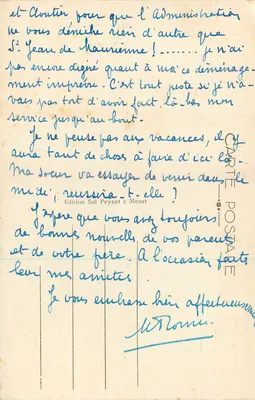 et Clouter pour que l'Administration
ne vous déniche rien d'autre que
St Jean de Maurienne !....... je n'ai
pas encore digéré quant à moi ce déménage-
ment imprévu. C'est tout juste si je n'a-
vais pas tort d'avoir fait là-bas mon
service jusqu'au bout.
Je ne pense pas aux vacances, il y
aura tant de choses à faire d'ici là.
Ma soeur va essayer de venir dans le
midi, reussira-t-elle ?
Edition Sol Peynet à Menet
CARTE POSTALE
J'espère que vous avez toujours
de bonnes nouvelles de vos parents
et de votre frère. A l'occasion faites
leur mes amitiés.
Je vous embrasse bien affectueusement